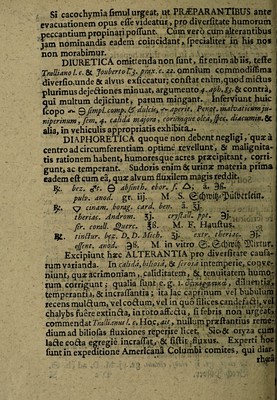 Si cacochymia simul urgeat, ut PRÆPARANTIBUS ante
evacuationem opus esse videatur, pro diversitate humorum
peccantium propinari possunt. Cum verò cum alterantibus
jam nominandis eadem coincidant, specialiter in his nos
non morabimur.
DIURETICA omittenda non sunt, sit enim ab iis, teste
Tralliano l. c. & Jouberto T. 3. prax. c. 22. omnium commodissima
diversio, unde & alvus exsiccatur; constat enim, quod mictus
plurimus dejectiones minuat, argumento 4. aph. 83. & contrà,
qui multum dejiciunt, parum mingant. Inserviunt huic
scopo simpl. comp. & dulcis,
niperinum, sem. 4. calida majora, corúmque olea, spec. diacumin. &
alia, in vehiculis appropriatis exhibita.
DIAPHORETICA quoque non debent negligi, quæ à
centro ad circumferentiam optimè revellunt, & malignita-
tis rationem habent, humoresque acres præcipitant, corri-
gunt, ac temperant. Sudoris enim & urinæ materia prima
eadem est cum eâ, quæ alvum fluxilem magis reddit.
℞. bez. absinth. ebor. s. ā. ℈ß.
pulv. anod. gr. iij. M. S. Schwitz-Pülverlein.
℞. cinam. bong. card. ben. ā. ℥j.
theriac. Androm. ʒj. crystall. ppt. ℈j.
sir. corall. Querc. ℥ß. M. F. Haustus.
℞. tinctur. bez. D. D. Mich. ʒj. extr. theriac. ℈j.
essent. anod. ℈ß. M. in vitro S. Schwitz-Mixtur.
Excipiunt hæc ALTERANTIA pro diversitate causa-
rum varianda. In calidâ, biliosâ, & serosâ intemperie, conve-
niunt, quæ acrimoniam, caliditatem, & tenuitatem humo-
rum corrigunt; qualia sunt e. g. diluentia,
temperantia, & incrassantia; ita lac caprinum vel bubulum
recens mulctum, vel coctum, vel in quo silices candefacti, vel
chalybs fuêre extincta, in toto affectu, si febris non urgeat,
commendat Trallianus l. c. Hoc, ait, nullum præstantius reme-
dium ad biliosas fluxiones reperire licet. Sic & oryza cum
lacte cocta egregiè incrassat, & sistit fluxus. Experti hoc
sunt in expeditione Americanâ Columbi comites, qui diar-
rhœâ